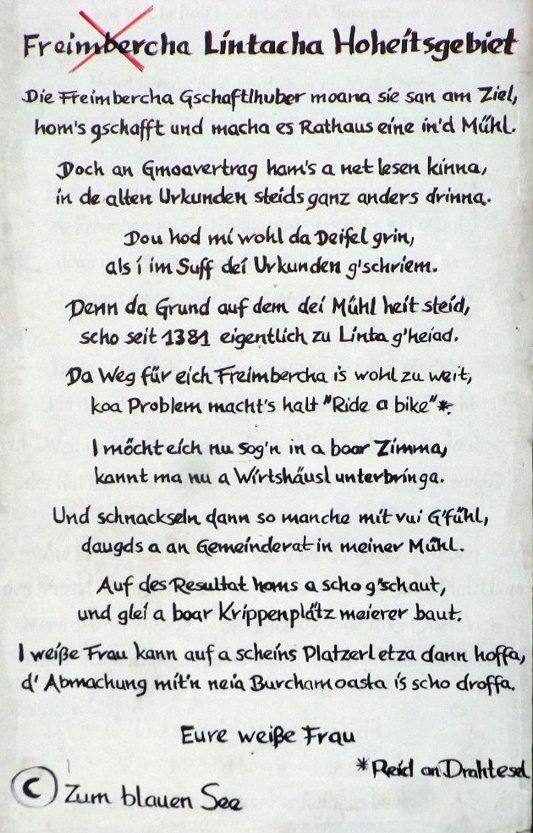 Freimbercha Lintacha Hoheitsgebiet
Die Freimbercha Gschaftlhuber moana sie san am Ziel,
hom's gschafft und macha es Rathaus eine in'd Mühl.
Doch an Gmoavertrag ham's a net lesen kinna,
in de alten Urkunden steids ganz anders drinna.
Dou hod mi wohl da Deifel grin,
als i im Suff dei Urkunden g'schriem.
Denn da Grund auf dem dei Mühl heit steid,
scho seit 1381 eigentlich zu Linta g'heiad.
Da Weg für eich Freimbercha is wohl zu weit,
koa Problem macht's halt "Ride a bike"*.
I möcht eich nu sog'n in a boar Zimma,
kannt ma nu a Wirtshäusl unterbringa.
Und schnackseln dann so manche mit vui G'fühl,
daugds a an Gemeinderat in meiner Mühl.
Auf des Resultat homs a scho g'schaut,
und glei a boar Krippenplätz meierer baut.
I weiße Frau kann auf a scheins Platzerl etza dann hoffa,
d' Abmachung mit'n neia Burchamoasta is scho droffa.
Eure weiße Frau
*Reid an Drahtesel
© Zum blauen See